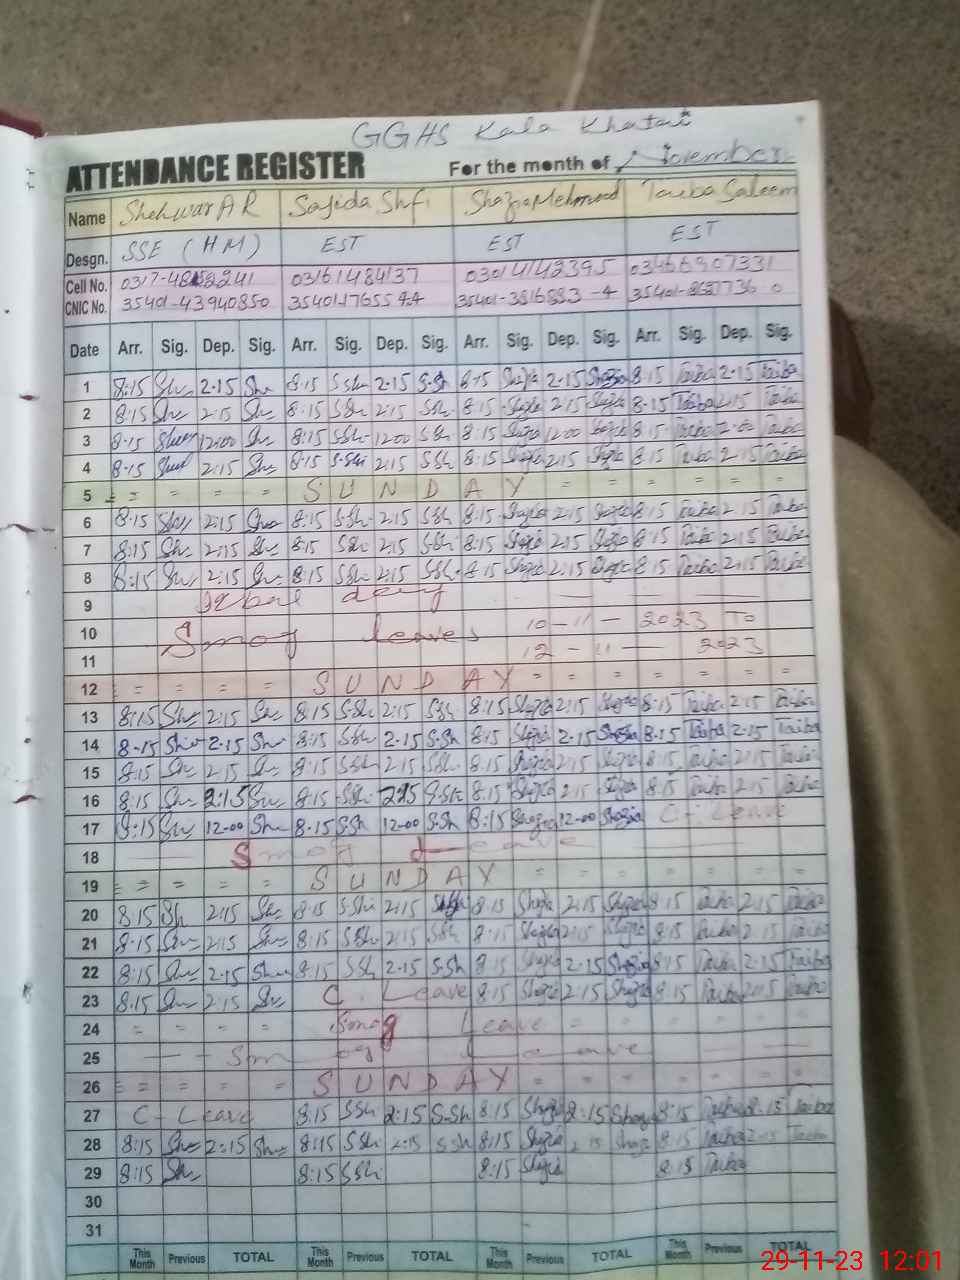 GGHS Kala Khatai
ATTENDANCE REGISTER For the month of November
Name Shehwar A R Sajida Shfi Shazia Mehmood Taiba Saleem
Desgn. SSE (HM) EST EST EST
Cell No. 03161484137 03014142395 03466907331
CNIC No. 35401-43940850 35401-3816583-4
Date Arr. Sig. Dep. Sig. Arr. Sig. Dep. Sig. Arr. Sig. Dep. Sig. Arr. Sig. Dep. Sig.
1 8:15 She 2:15 She 8:15 S.Sh 2:15 S.Sh 8:15 Shazia 2:15 Shazia 8:15 Taiba 2:15 Taiba
2 8:15 She 2:15 She 8:15 S.Sh 2:15 S.Sh 8:15 Shazia 2:15 Shazia 8:15 Taiba 2:15 Taiba
3 8:15 12:00 She 8:15 S.Sh 12:00 S.Sh 8:15 Shazia 12:00 Shazia 8:15 Taiba Taiba
4 8:15 2:15 She 8:15 S.Sh 2:15 S.Sh 8:15 Shazia 2:15 Shazia 8:15 Taiba 2:15 Taiba
5 = = = = S U N D A Y = = = = = =
6 8:15 She 2:15 She 8:15 S.Sh 2:15 S.Sh 8:15 Shazia 2:15 Shazia 8:15 Taiba 2:15 Taiba
7 8:15 She 2:15 She 8:15 S.Sh 2:15 S.Sh 8:15 Shazia 2:15 Shazia 8:15 Taiba 2:15 Taiba
8 8:15 She 2:15 She 8:15 S.Sh 2:15 S.Sh 8:15 Shazia 2:15 Shazia 8:15 Taiba 2:15 Taiba
9 Iqbal day
10 Smog leaves 10-11-2023 To
11 12-11-2023
12 = = = = S U N D A Y = = = = = =
13 8:15 She 2:15 She 8:15 S.Sh 2:15 S.Sh 8:15 Shazia 2:15 Shazia 8:15 Taiba 2:15 Taiba
14 8:15 She 2:15 She 8:15 S.Sh 2:15 S.Sh 8:15 Shazia 2:15 Shazia 8:15 Taiba 2:15 Taiba
15 8:15 She 2:15 She 8:15 S.Sh 2:15 S.Sh 8:15 Shazia 2:15 Shazia 8:15 Taiba 2:15 Taiba
16 8:15 She 2:15 She 8:15 S.Sh 2:15 S.Sh 8:15 Shazia 2:15 Shazia 8:15 Taiba 2:15 Taiba
17 8:15 She 12-00 She 8:15 S.Sh 12-00 S.Sh 8:15 Shazia 12-00 Shazia C-Leave
18 Smog Leave
19 = = = = S U N D A Y = = = = = =
20 8:15 Sh 2:15 She 8:15 S.Sh 2:15 8:15 Shazia 2:15 Shazia 8:15 Taiba 2:15 Taiba
21 8:15 She 2:15 She 8:15 S.Sh 2:15 S.Sh 8:15 Shazia 2:15 Shazia 8:15 Taiba 2:15 Taiba
22 8:15 She 2:15 She 8:15 S.Sh 2:15 S.Sh 8:15 Shazia 2:15 Shazia 8:15 Taiba 2:15 Taiba
23 8:15 She 2:15 She C. Leave 8:15 Shazia 2:15 Shazia 8:15 Taiba 2:15 Taiba
24 = = = = Smog Leave = = = = = =
25 Smog Leave
26 = = = = S U N D A Y = = = = = =
27 C-Leave 8:15 S.Sh 2:15 S.Sh 8:15 Shazia 2:15 Shazia 8:15 Taiba 2:15 Taiba
28 8:15 She 2:15 She 8:15 S.Sh 2:15 S.Sh 8:15 Shazia 2:15 Shazia 8:15 Taiba 2:15 Taiba
29 8:15 She 8:15 S.Sh 8:15 Shazia 8:15 Taiba
30
31
This Month Previous TOTAL This Month Previous TOTAL This Month Previous TOTAL This Month Previous TOTAL
29-11-23 12:01